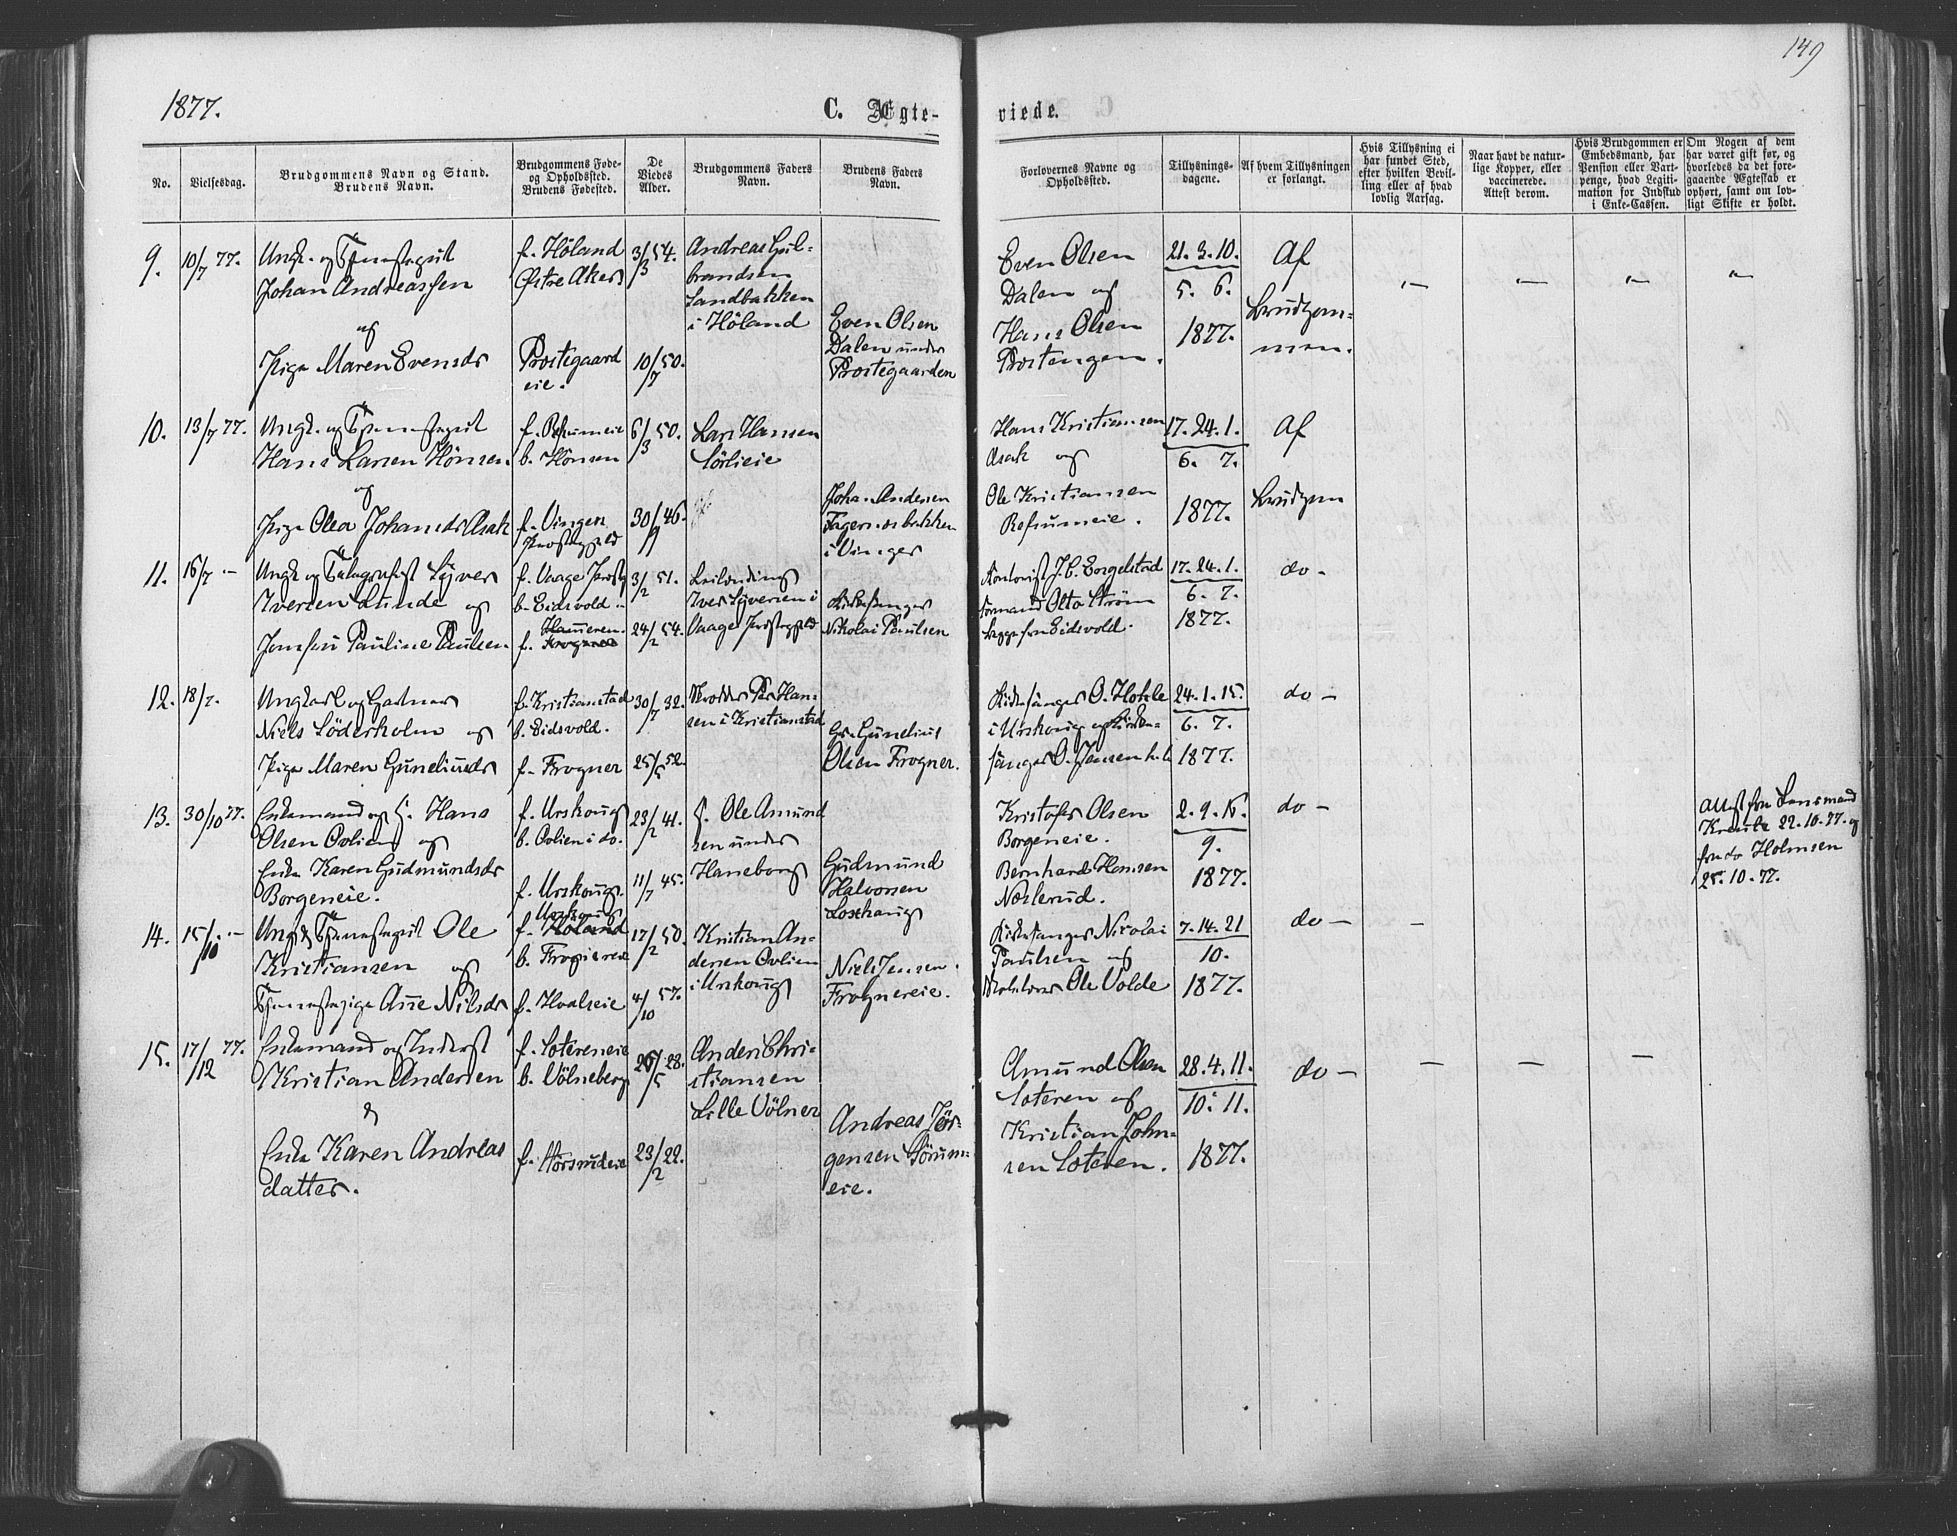 149
1877.
C. Ægte-
viede.
No.
Vielsesdag.
Brudgommens Navn og Stand.
Brudens Navn.
Brudgommens Føde-
og Opholdssted.
Brudens Fødested.
De
Viedes
Alder.
Brudgommens Faders
Navn.
Brudens Faders
Navn.
Forlovernes Navne og
Opholdssted.
Tillysnings-
dagene.
Af hvem Tillysningen
er forlangt.
Hvis Tillysning ei
har fundet Sted,
efter hvilken Bevil-
ling eller af hvad
lovlig Aarsag.
Naar havt de natur-
lige Kopper, eller
vaccinerede.
Attest derom.
Hvis Brudgommen er
Embedsmand, har
Pension eller Vart-
penge, hvad Legiti-
mation for Indskud
i Enke-Cassen.
Om Nogen af dem
har været gift før, og
hvorledes da det fore-
gaaende Ægteskab er
ophørt, samt om lov-
ligt Skifte er holdt.
9.
10/7 77.
Ungk. og Tjenestegut
Johan Andreassen
og
Pige Maren Evensdr
f. Høland
Østre Aker
Prostegaard
eie.
3/3 54.
10/7 50.
Andreas Gul-
brandsen
Sandbakken
i Høland
Even Olsen
Dalen under
Prostegaarden
Even Olsen
Dalen og
Hans Olsen
Prostengen.
21. 3. 10.
5. 6.
1877.
Af
Brudgom-
men.
10.
13/7 77.
Ungk. og Tjenestegut
Hans Larsen Hönsen
og
Pige Olea Johansdr Asak
f. Refsumeie
b. Hönsen
f. Vinger
Prestegjeld
6/3 50.
30/9 46.
Lars Hansen
Sörlieie
Johan Andersen
Fagernesbakken
i Vinger
Hans Kristiansen
Asak og
Ole Kristiansen
Refsumeie.
17. 24. 1.
6. 7.
1877.
Af
Brudgom
11.
16/7 "
Ungk og Telegrafist Syver
Iversen Lunde og
Jomfru Pauline Paulsen
f. Vaage Prestg
b. Eidsvold
Hammeren
f. Frogner
3/2 51.
24/2 54.
Leilending
Iver Syversen i
Vaage Prestegjeld
Kirkesanger
Nikolai Paulsen
Kontorist J. C. Engelstad
Formand Otto Strøm
begge fra Eidsvold.
17. 24. 1.
6. 7.
1877.
do -
12.
18/7.
Ungkarl og Gartner
Niels Söderholm og
Pige Maren Guneliusdr
f. Kristianstad
b. Eidsvold.
f. Frogner
30/7 32.
25/5 52.
Per Han-
sen i Kristianstad
Gunelius
Olsen Frogner.
Kirkesanger O. Hokle
i Urskoug og Kirke-
sanger O. Jensen h.s.
24. 1. 15.
6. 7.
1877.
do -
13.
30/10 77.
Enkemand og S. Hans
Olsen Ovlien og
Enke Karen Gudmundsdr
Borgeneie.
f. Urskoug
b. Ovlien i do.
f. Urskoug.
23/2 41.
11/7 45.
S. Ole Amund
sen under
Haneborg
Gudmund
Halvorsen
Loshaug
Kristofer Olsen
Borgeneie.
Bernhard Hansen
Neslerud.
2. 9. 16.
9.
1877.
do -
Attest fra Lensmand
Kraule 22.10.77. og
fra do Holmsen
25.10.77.
14.
15/10 "
Ungk Tjenestegut Ole
Kristiansen og
Tjenestepige Anne Nilsdr
Urskoug
f. Höland
b. Frognereie
f. Hvalseie
17/2 50.
4/10 57.
Kristian An-
dersen Ovlien
i Urskoug
Niels Jensen.
Frognereie.
Kirkesanger Nicolai
Paulsen og
Ole Volde
7. 14. 21
10.
1877.
do -
15.
17/12 77.
Enkemand og Inderst
Kristian Andersen
&
Enke Karen Andreas
datter.
f. Sotereneie
b. Völneberg
f. Horsrudeie
26/5 28.
23/2 22.
Anders Chri-
stiansen
Lille Völner
Andreas Jör-
gensen Sörum-
eie.
Amund Olsen
Soteren og
Kristian John-
sen Soteren.
28. 4. 11.
10. 11.
1877.
do -